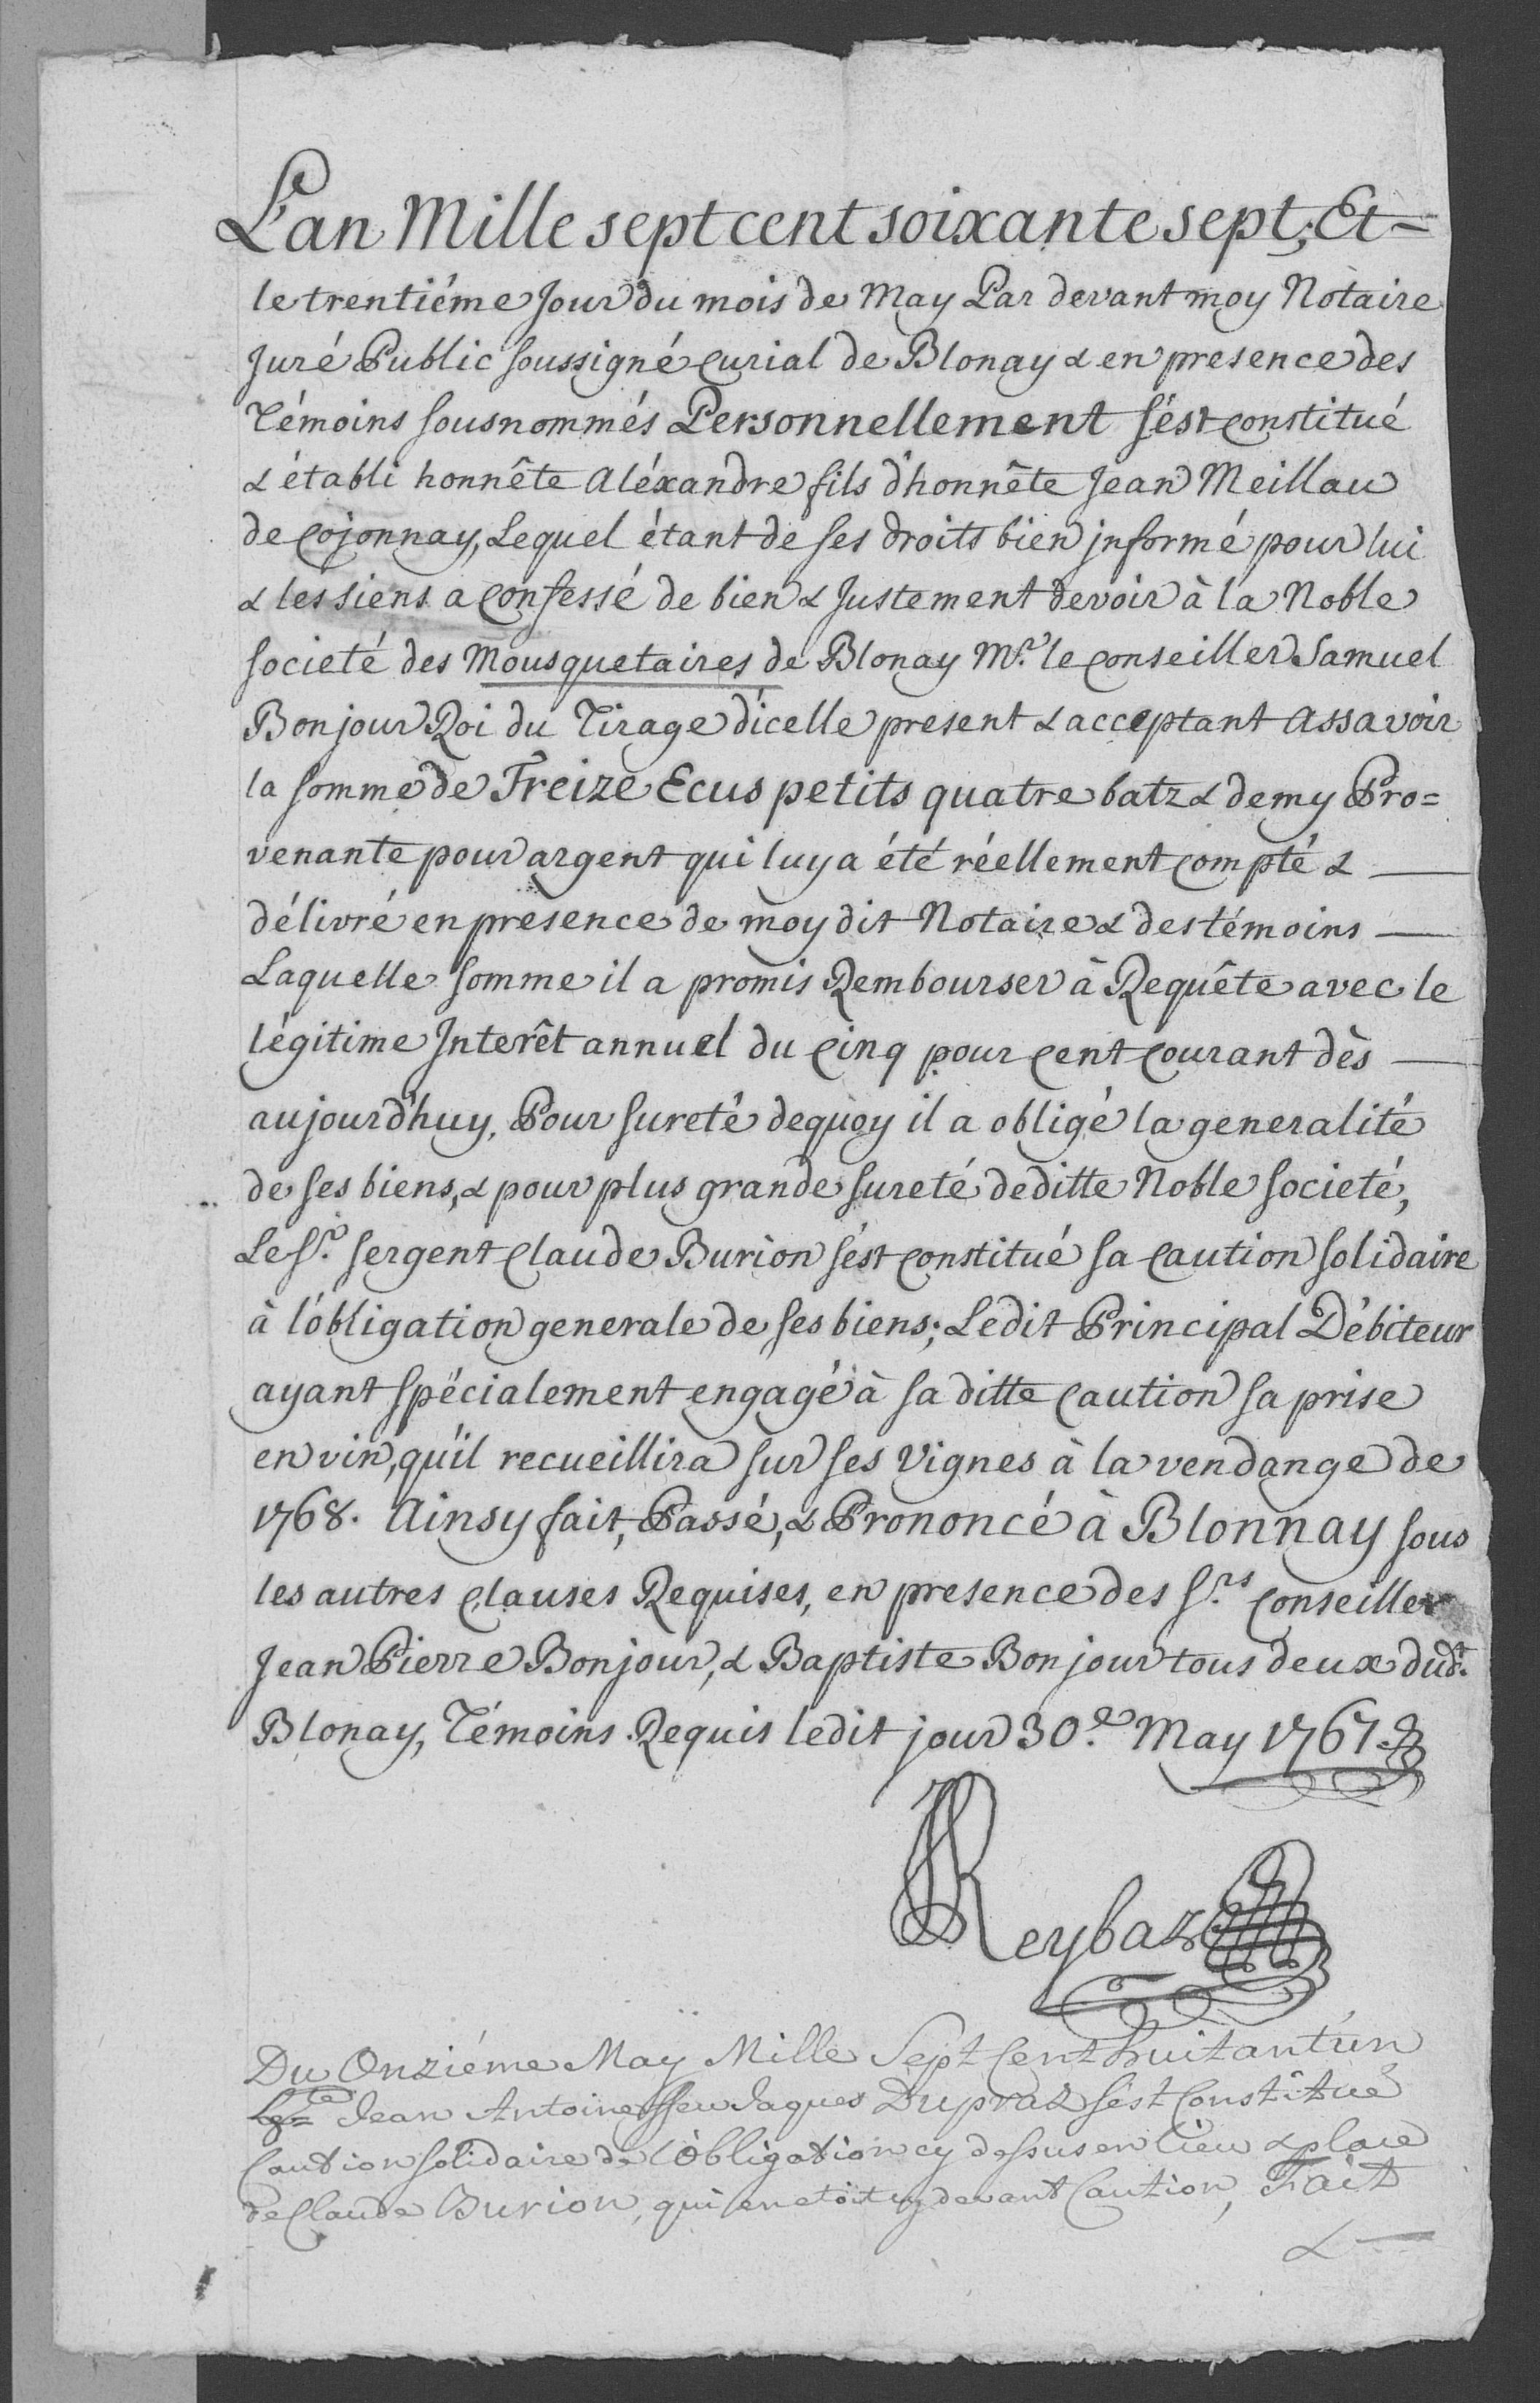 L'an Mille sept cent soixante sept, Et=
le trentiéme Jour du mois de May Par devant moy Notaire
Juré Public soussigné Curial de Blonay & en presence des
Témoins sousnommés Personnellement s'ést constitué
& établi honnête Aléxandre fils d'honnête Jean Meillau
de Cojonnay, Lequel étant de ses droits bien jnformé pour lui
& les siens a Confessé de bien & Justement devoir à la Noble
societé des Mousquetaires de Blonay Mr. le Conseiller Samuel
Bonjour Roi du Tirage d'icelle present & acceptant Assavoir
la somme de Treize Ecus petits quatre batz & demy Pro=
venante pour argent qui luy a été réellement Compté & —
délivré en presence de moy dit Notaire & des témoins —
Laquelle somme il a promis Rembourser à Requête avec le
légitime Jnterêt annuel du Cinq pour Cent Courant dès —
aujourd'huy, Pour sureté dequoy il a obligé la generalité
de ses biens, & pour plus grande sureté de ditte Noble societé,
Le Sr. sergent Claude Burion s'ést constitué sa Caution solidaire
à l'obligation generale de ses biens; Ledit Principal Débiteur
ayant spécialement engagé à sa ditte Caution sa prise
en vin, qu'il recueillira sur ses Vignes à la vendange de
1768. Ainsy fait, Passé, & Prononcé à Blonnay sous
les autres Clauses Requises, en presence des Srs. Conseiller
Jean Pierre Bonjour, & Baptiste Bonjour tous deux dudt.
Blonay, Témoins Requis ledit jour 30e. May 1767.
Reybaz
Du Onziéme May Mille Sept Cent huitant'un
Jean Antoine ffeu Jaques Dupraz s'est Constitué
Caution solidaire de l'Obligation cy dessus en lieu & place
de Claude Burion, qui en etoit cy devant Caution, Fait
& —